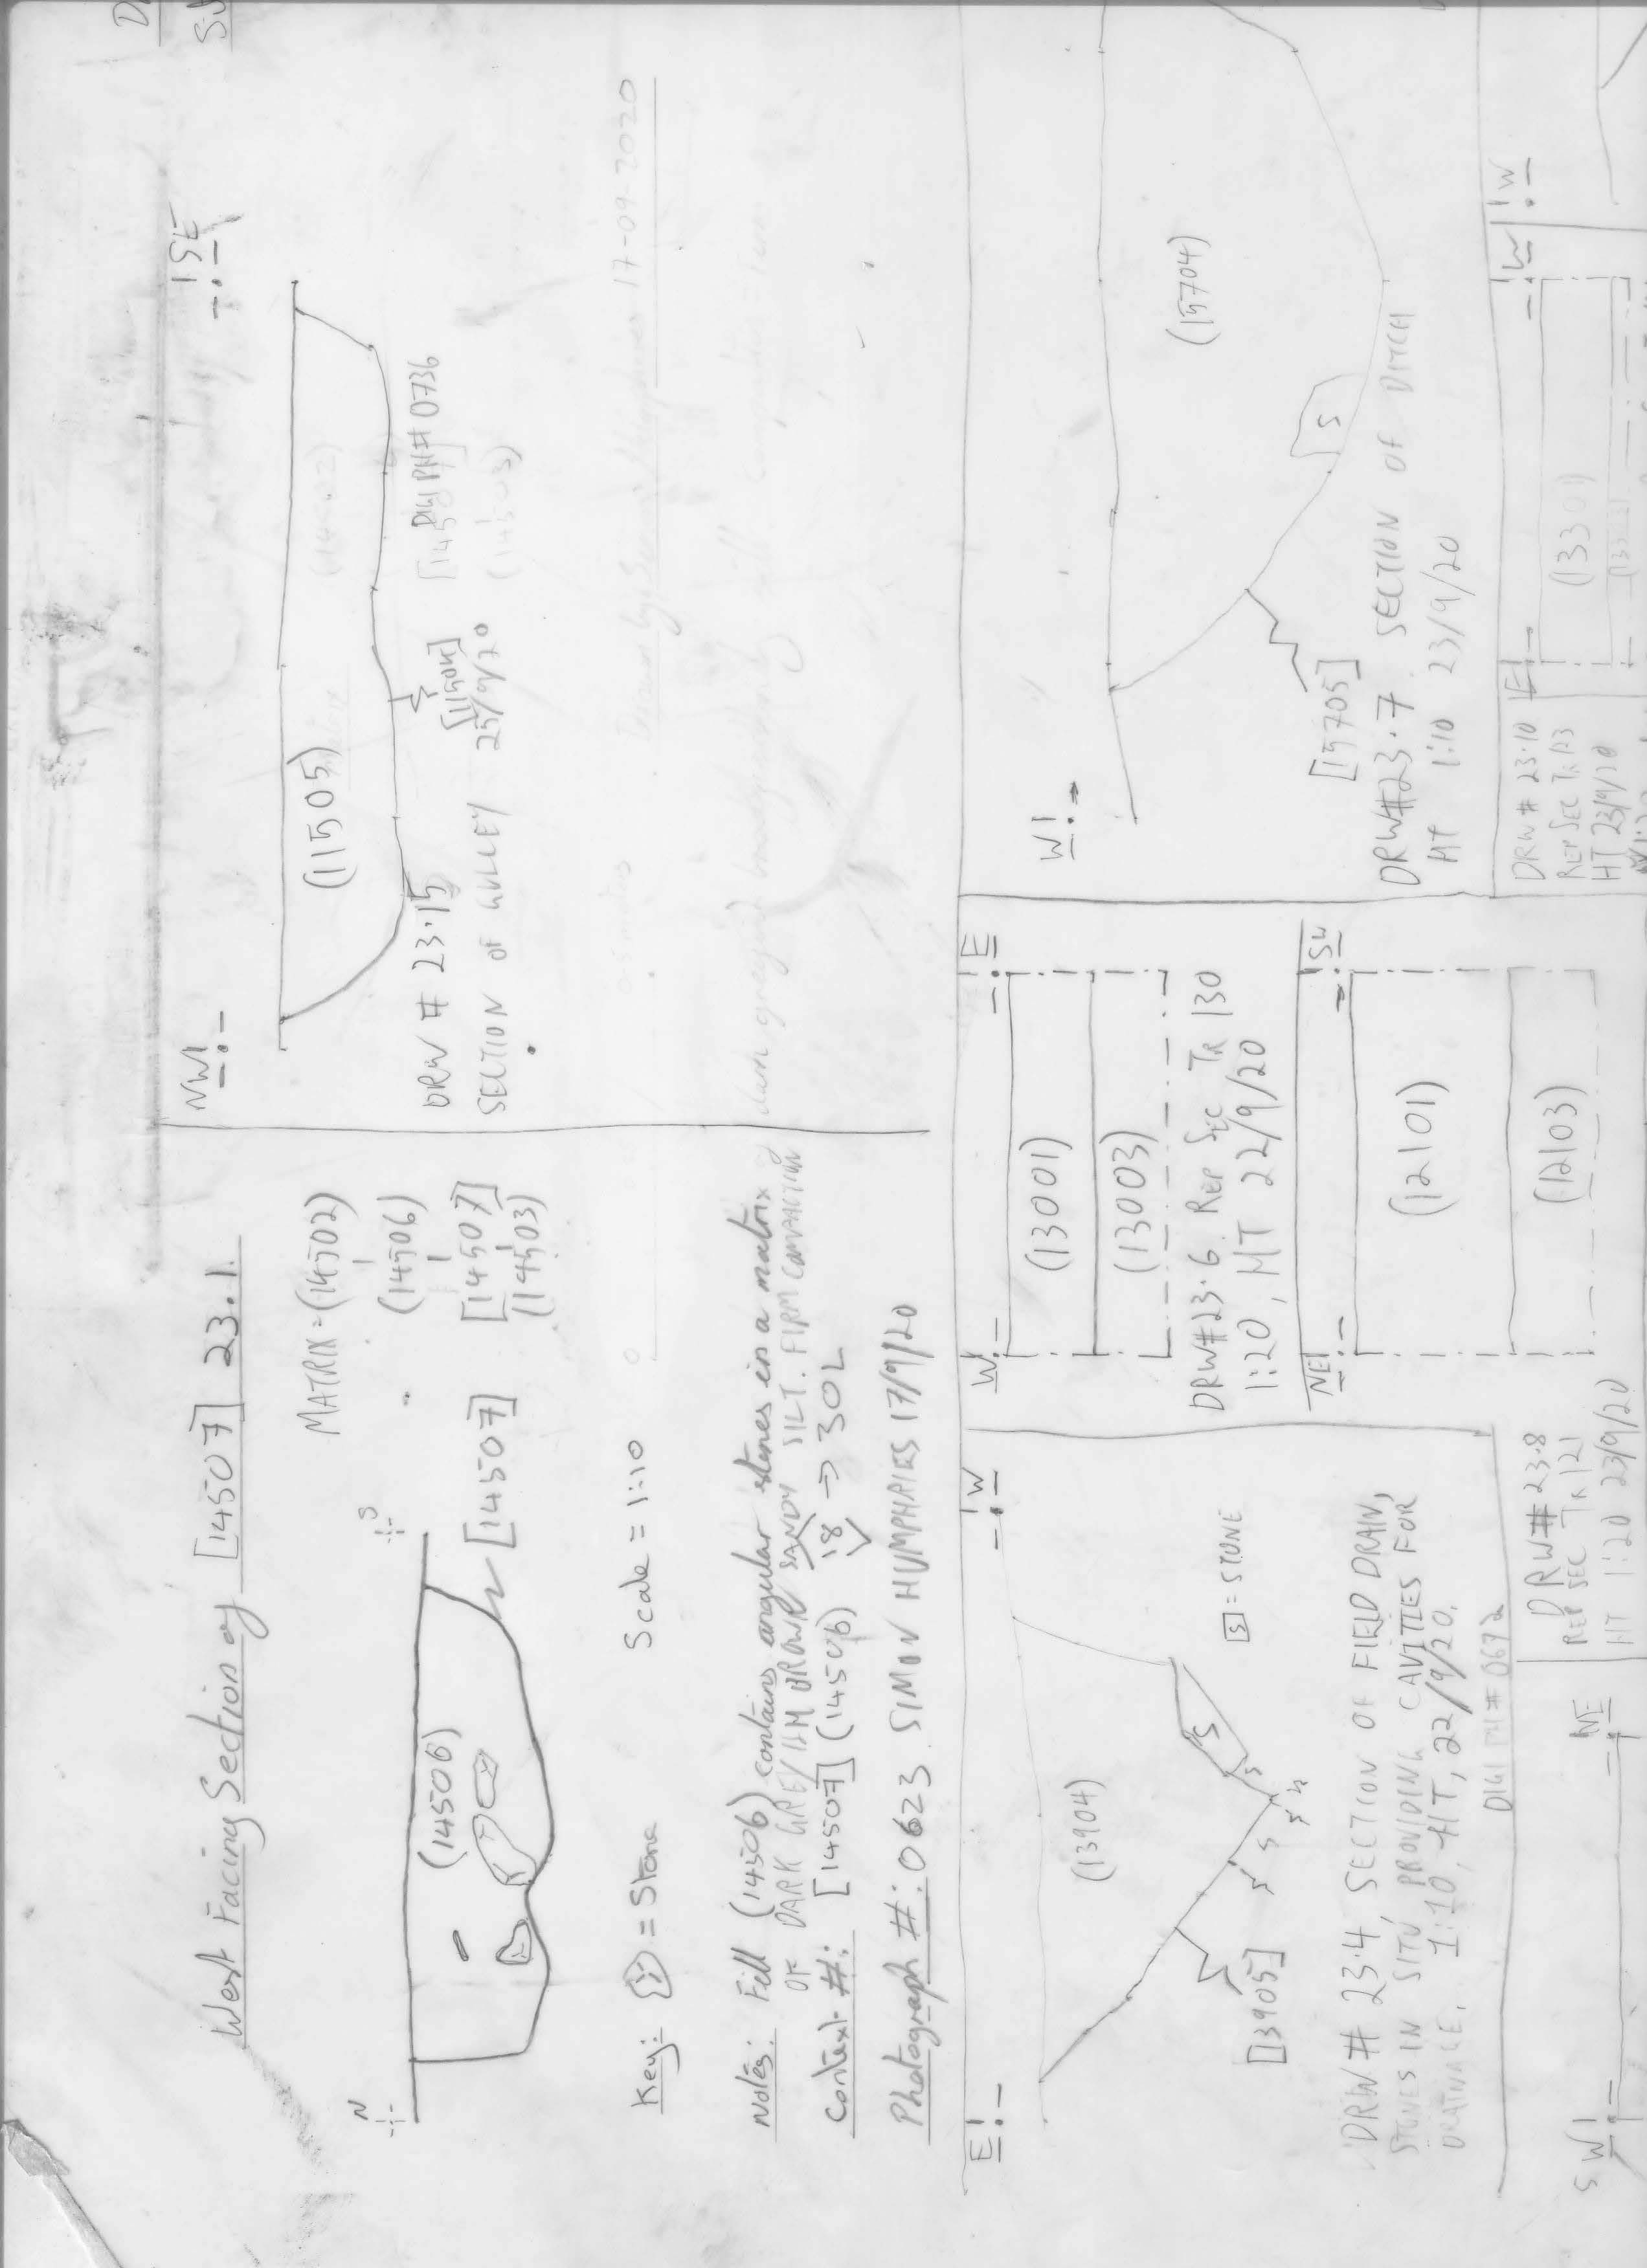 West Facing Section of [14507] 23.1
MATRIX - (14502)
(14506)
[14507]
(14503)
N
S
(14506)
[14507]
Key: = Stone
Scale = 1:10
0
Notes: Fill (14506) contains angular stones in a matrix
OF DARK GREYISH BROWN SANDY SILT. FIRM COMPACTION
Context #: [14507] (14506) <18> → 30L
Photograph #: 0623 SIMON HUMPHRIES 17/9/20
NW
SE
(11505)
(14502)
[11504]
DIGI PH# 0736
(14503)
DRW # 23.15
SECTION OF GULLEY 25/9/20
17-09-2020
E
W
(13904)
S
S
S
S
S
[13905]
S = STONE
DRW # 23.4 SECTION OF FIELD DRAIN,
STONES IN SITU, PROVIDING CAVITIES FOR
DRAINAGE. 1:10, HT, 22/9/20.
DIGI PH # 0672
W
E
(13001)
(13003)
DRW#23.6 REP SEC TR 130
1:20, HT 22/9/20
NE
SW
(12101)
(12103)
DRW# 23.8
REP SEC TR 121
HT 1:20 23/9/20
W
(15704)
S
[15705]
DRW#23.7 SECTION OF DITCH
HT 1:10 23/9/20
DRW # 23.10
REP SEC TR 133
HT 23/9/20
E
W
(13301)
W
SW
NE